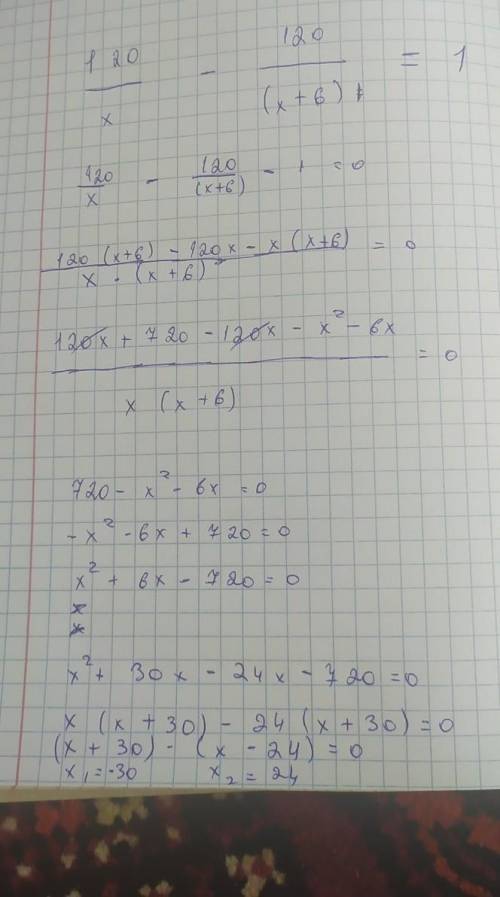 120/x - 120/(x+6) = 1
120/x - 120/(x+6) - 1 = 0
120(x+6) - 120x - x(x+6) / x · (x+6) = 0
120x + 720 - 120x - x² - 6x / x (x+6) = 0
720 - x² - 6x = 0
-x² - 6x + 720 = 0
x² + 6x - 720 = 0
x
x
x² + 30x - 24x - 720 = 0
x (x + 30) - 24 (x + 30) = 0
(x + 30) - (x - 24) = 0
x₁ = -30 x₂ = 24